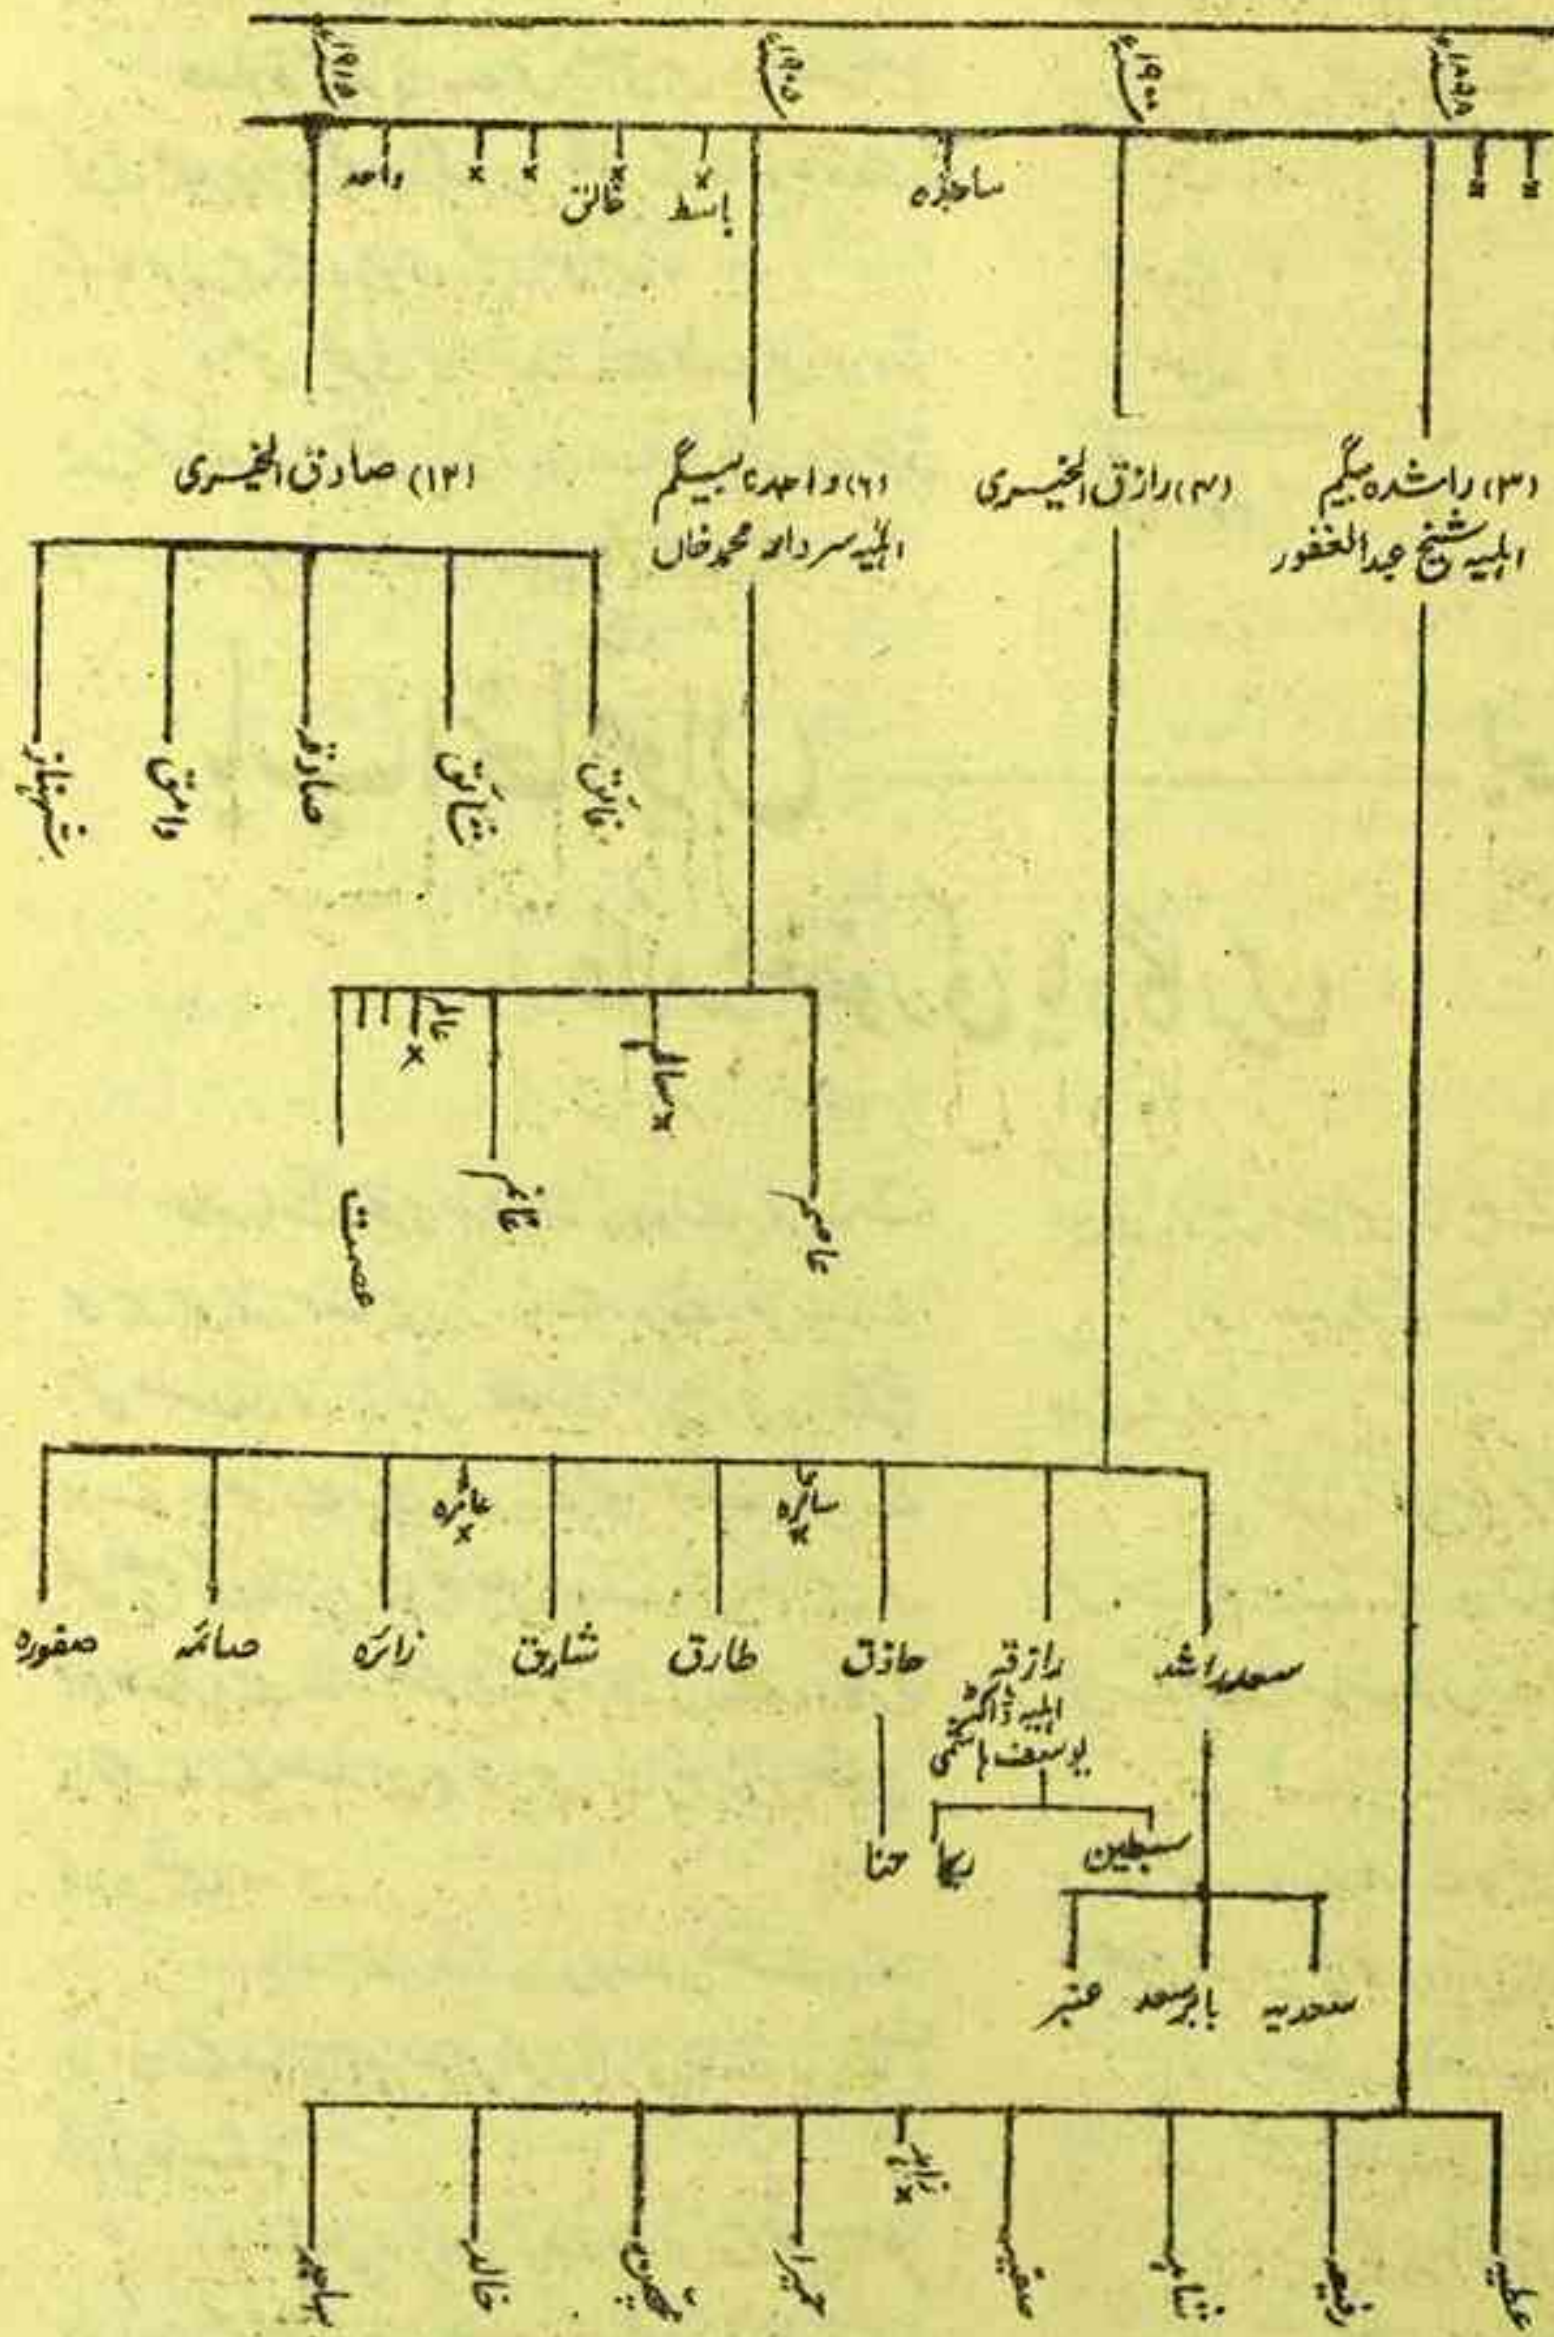 ۱۸۹۸ء
۱۹۰۰ء
۱۹۰۵ء
۱۹۱۵ء
x
x
ساجدہ
باسط
x
خالق
x
x
x
واحد
(۳) راشدہ بیگم
اہلیہ شیخ عبدالغفور
(۴) رازق الخیری
(۶) واجدہ بیگم
اہلیہ سردار محمد خاں
(۱۲) صادق الخیری
فائق
شائق
صادقہ
وامق
شہناز
عاصم
سالم x
غانم
عالم x
عصمت
سائرہ
x
عائرہ
x
سعد راشد
رازقہ
اہلیہ ڈاکٹر
یوسف ہاشمی
حاذق
طارق
شارق
زائرہ
صائمہ
صفورہ
سبطین
ربا
حنا
سعدیہ
بابر سعد
عنبر
عطیہ
رفیعہ
شاہد
صفیہ
زاہد x
حمیرا
خالد